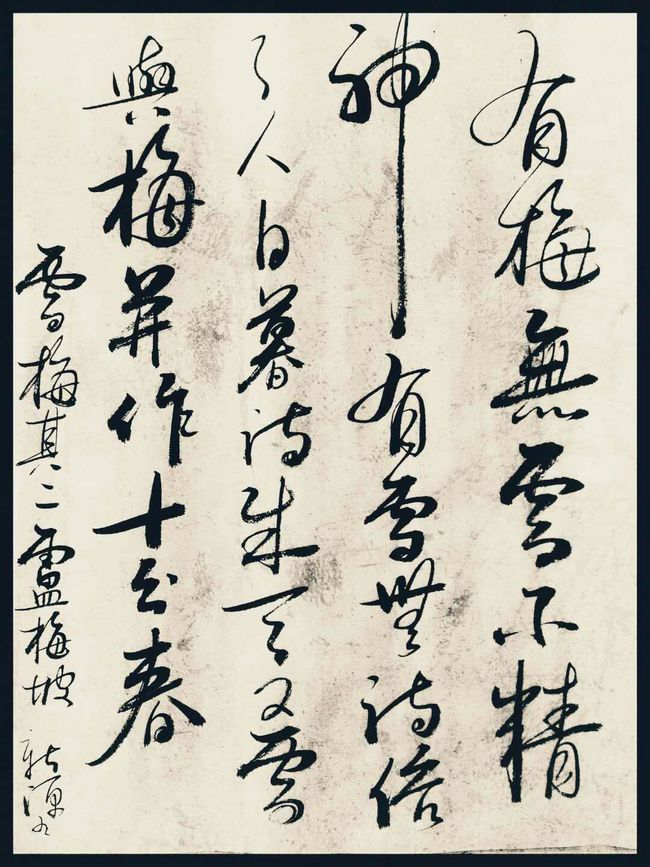 有梅無雪不精
神有雪無詩俗
了人日暮詩成天又雪
與梅并作十分春
雪梅其二盧梅坡